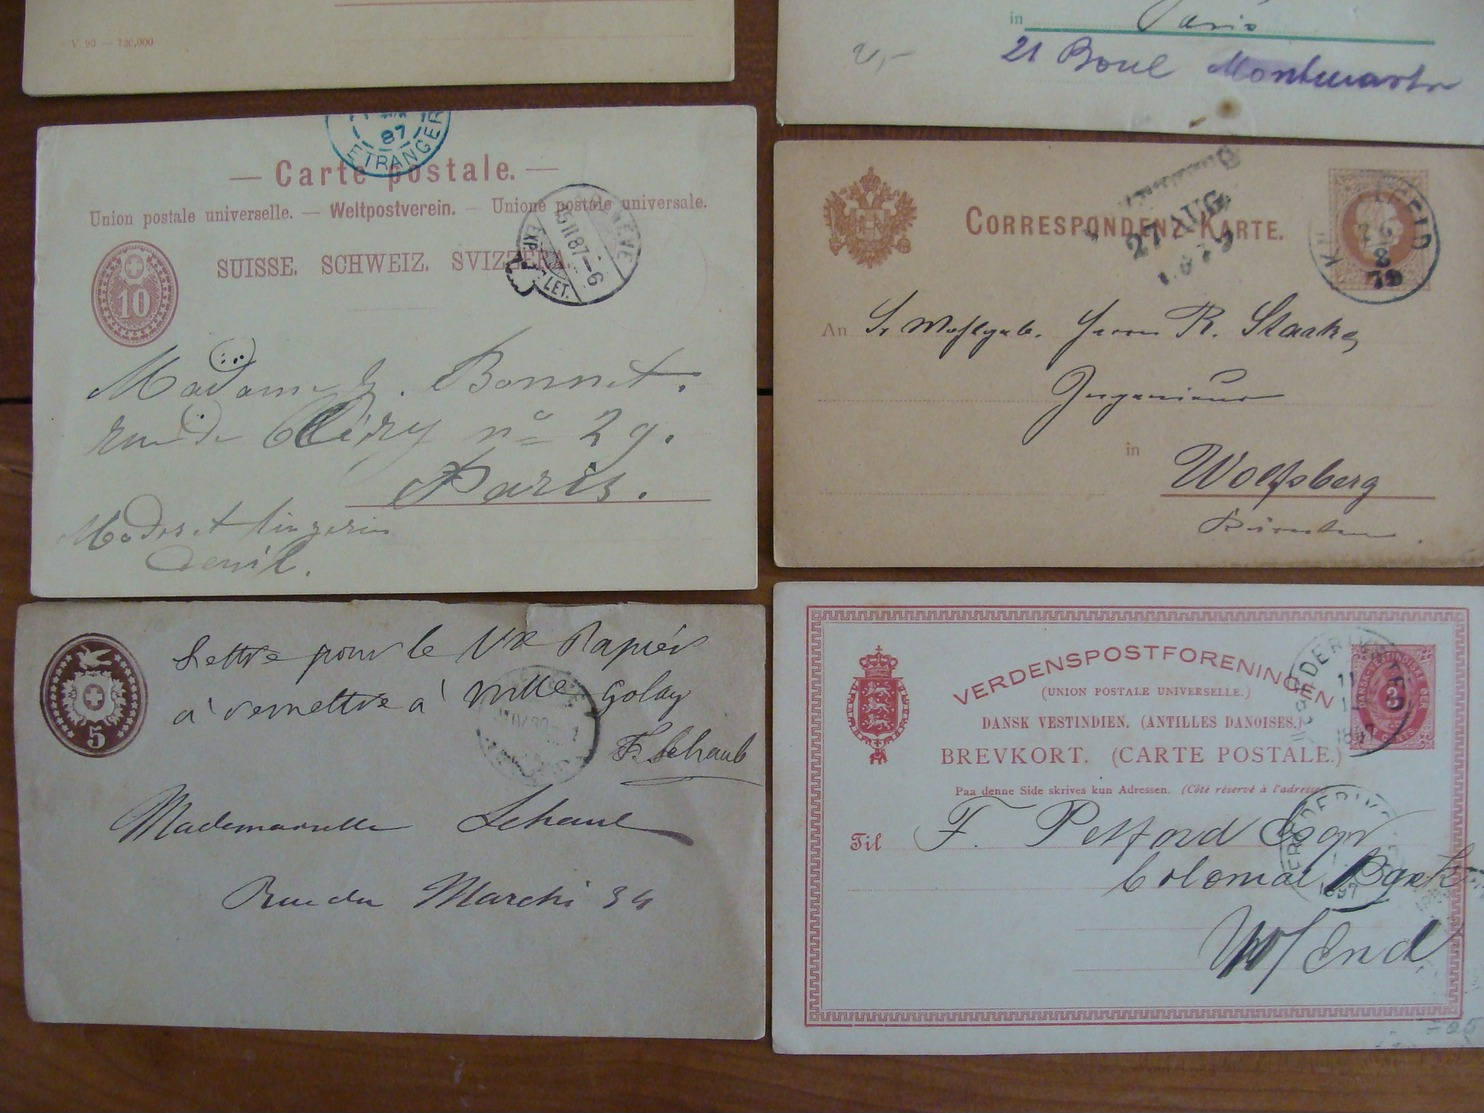 V. 90 — 720,000
in Paris
21 Boul Montmartre
ETRANGER
87
— Carte postale. —
Union postale universelle. — Weltpostverein. — Unione postale universale.
SUISSE. SCHWEIZ. SVIZZERA.
EXP. LET.
II 87—6
10
Madame Bonnet.
rue de Cléry nº 29.
Paris.
Modes et lingerie
Deuil.
CORRESPONDENZ-KARTE.
27 AUG
1879
26
8
79
An Sr Wohlgeb. Herrn R. Staake,
Ingenieur
in Wolfsberg
Kärnten.
5
Lettre pour le Vx Papier
à remettre à Mlle Golay
F. Schaub
Mademoiselle Schaub
Rue du Marché 34
VERDENSPOSTFORENINGEN
(UNION POSTALE UNIVERSELLE.)
DANSK VESTINDIEN. (ANTILLES DANOISES.)
BREVKORT. (CARTE POSTALE.)
Paa denne Side skrives kun Adressen. (Côté réservé à l'adresse
3
Til F. Petford Esqr
Colonial Bank
W/End